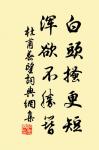 白頭搔更短
渾欲不勝簪
杜甫春望詞典網集